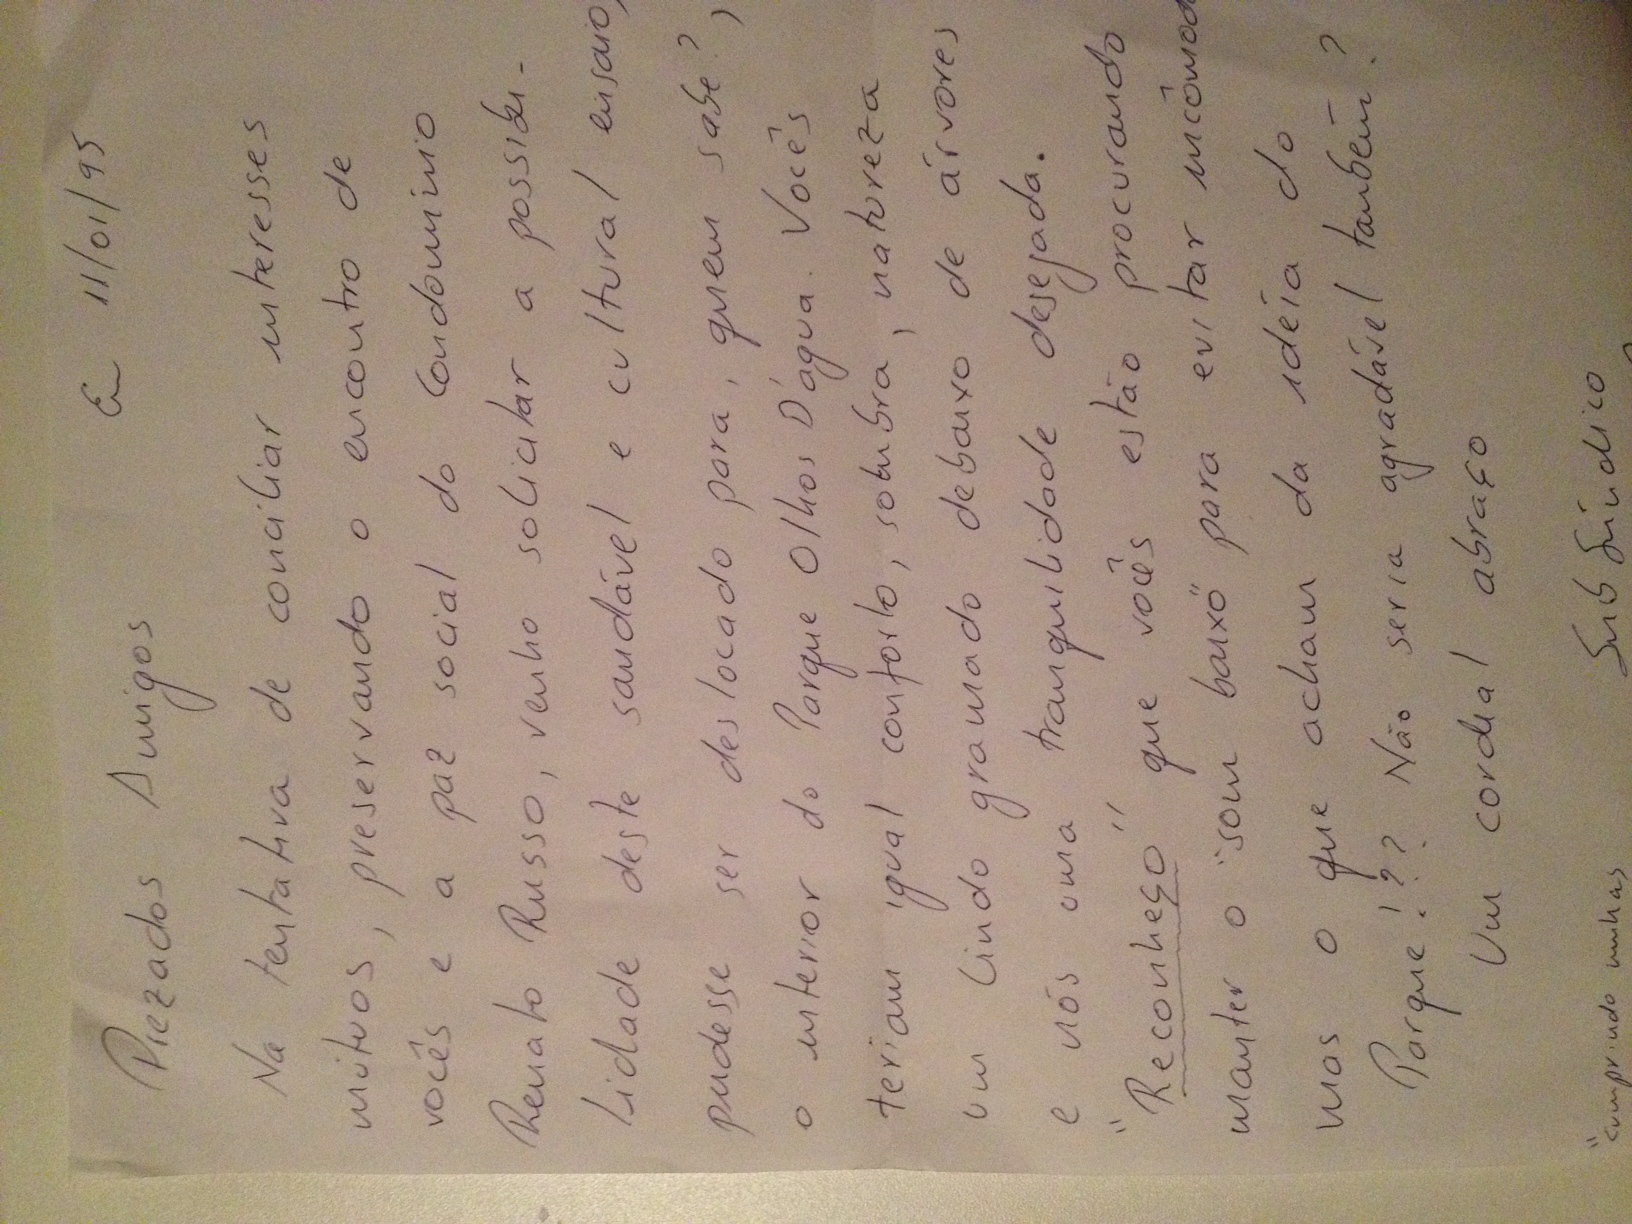 Em 11/01/95
Prezados Amigos
Na tentativa de conciliar interesses
mútuos, preservando o encontro de
vocês e a paz social do Condomínio
Renato Russo, venho solicitar a possibi-
lidade deste saudável e cultural ensaio,
pudesse ser deslocado para, quem sabe?,
o interior do Parque Olhos D'água. Vocês
teriam igual conforto, sombra, natureza
um lindo gramado debaixo de árvores
e nós uma tranquilidade desejada.
"Reconheço" que vocês estão procurando
manter o "som baixo" para evitar incômodo
mas o que acham da idéia do
Parque!?? Não seria agradável também?
Um cordial abraço
SubSíndico
"cumprindo minhas